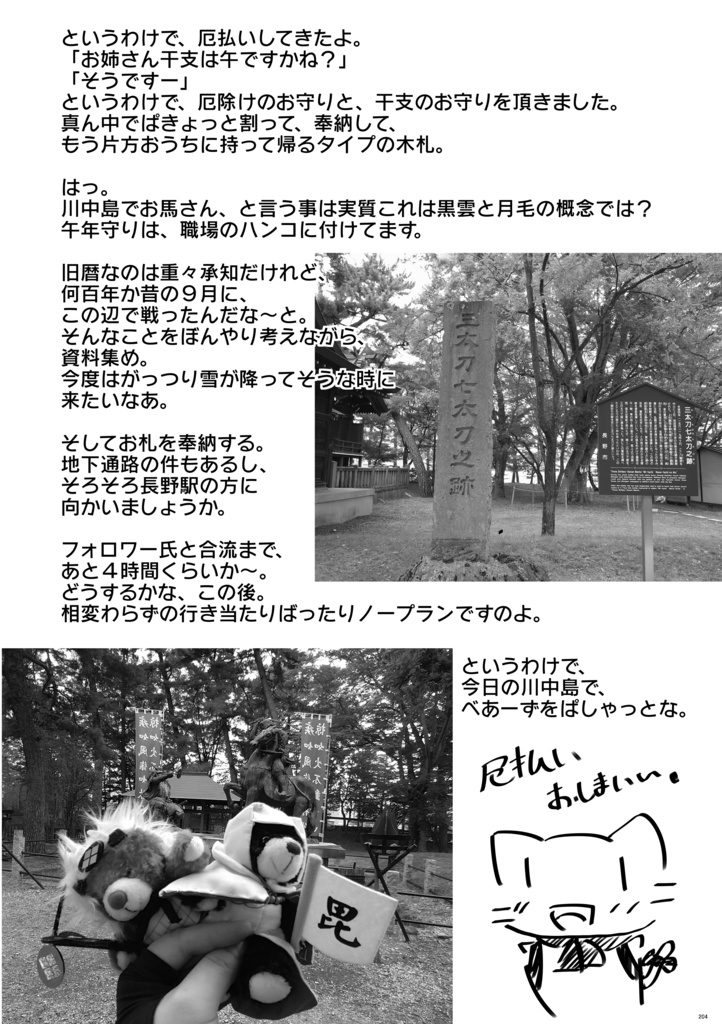 というわけで、厄払いしてきたよ。
「お姉さん干支は午ですかね？」
「そうですー」
というわけで、厄除けのお守りと、干支のお守りを頂きました。
真ん中でぱきょっと割って、奉納して、
もう片方おうちに持って帰るタイプの木札。
はっ。
川中島でお馬さん、と言う事は実質これは黒雲と月毛の概念では？
午年守りは、職場のハンコに付けてます。
旧暦なのは重々承知だけれど、
何百年か昔の９月に、
この辺で戦ったんだな～と。
そんなことをぼんやり考えながら、
資料集め。
今度はがっつり雪が降ってそうな時に
来たいなあ。
そしてお札を奉納する。
地下通路の件もあるし、
そろそろ長野駅の方に
向かいましょうか。
フォロワー氏と合流まで、
あと４時間くらいか～。
どうするかな、この後。
相変わらずの行き当たりばったりノープランですのよ。
三太刀七太刀之跡
三太刀七太刀之跡
長野市
というわけで、
今日の川中島で、
べあーずをぱしゃっとな。
厄払い、
おしまいい。
毘
204